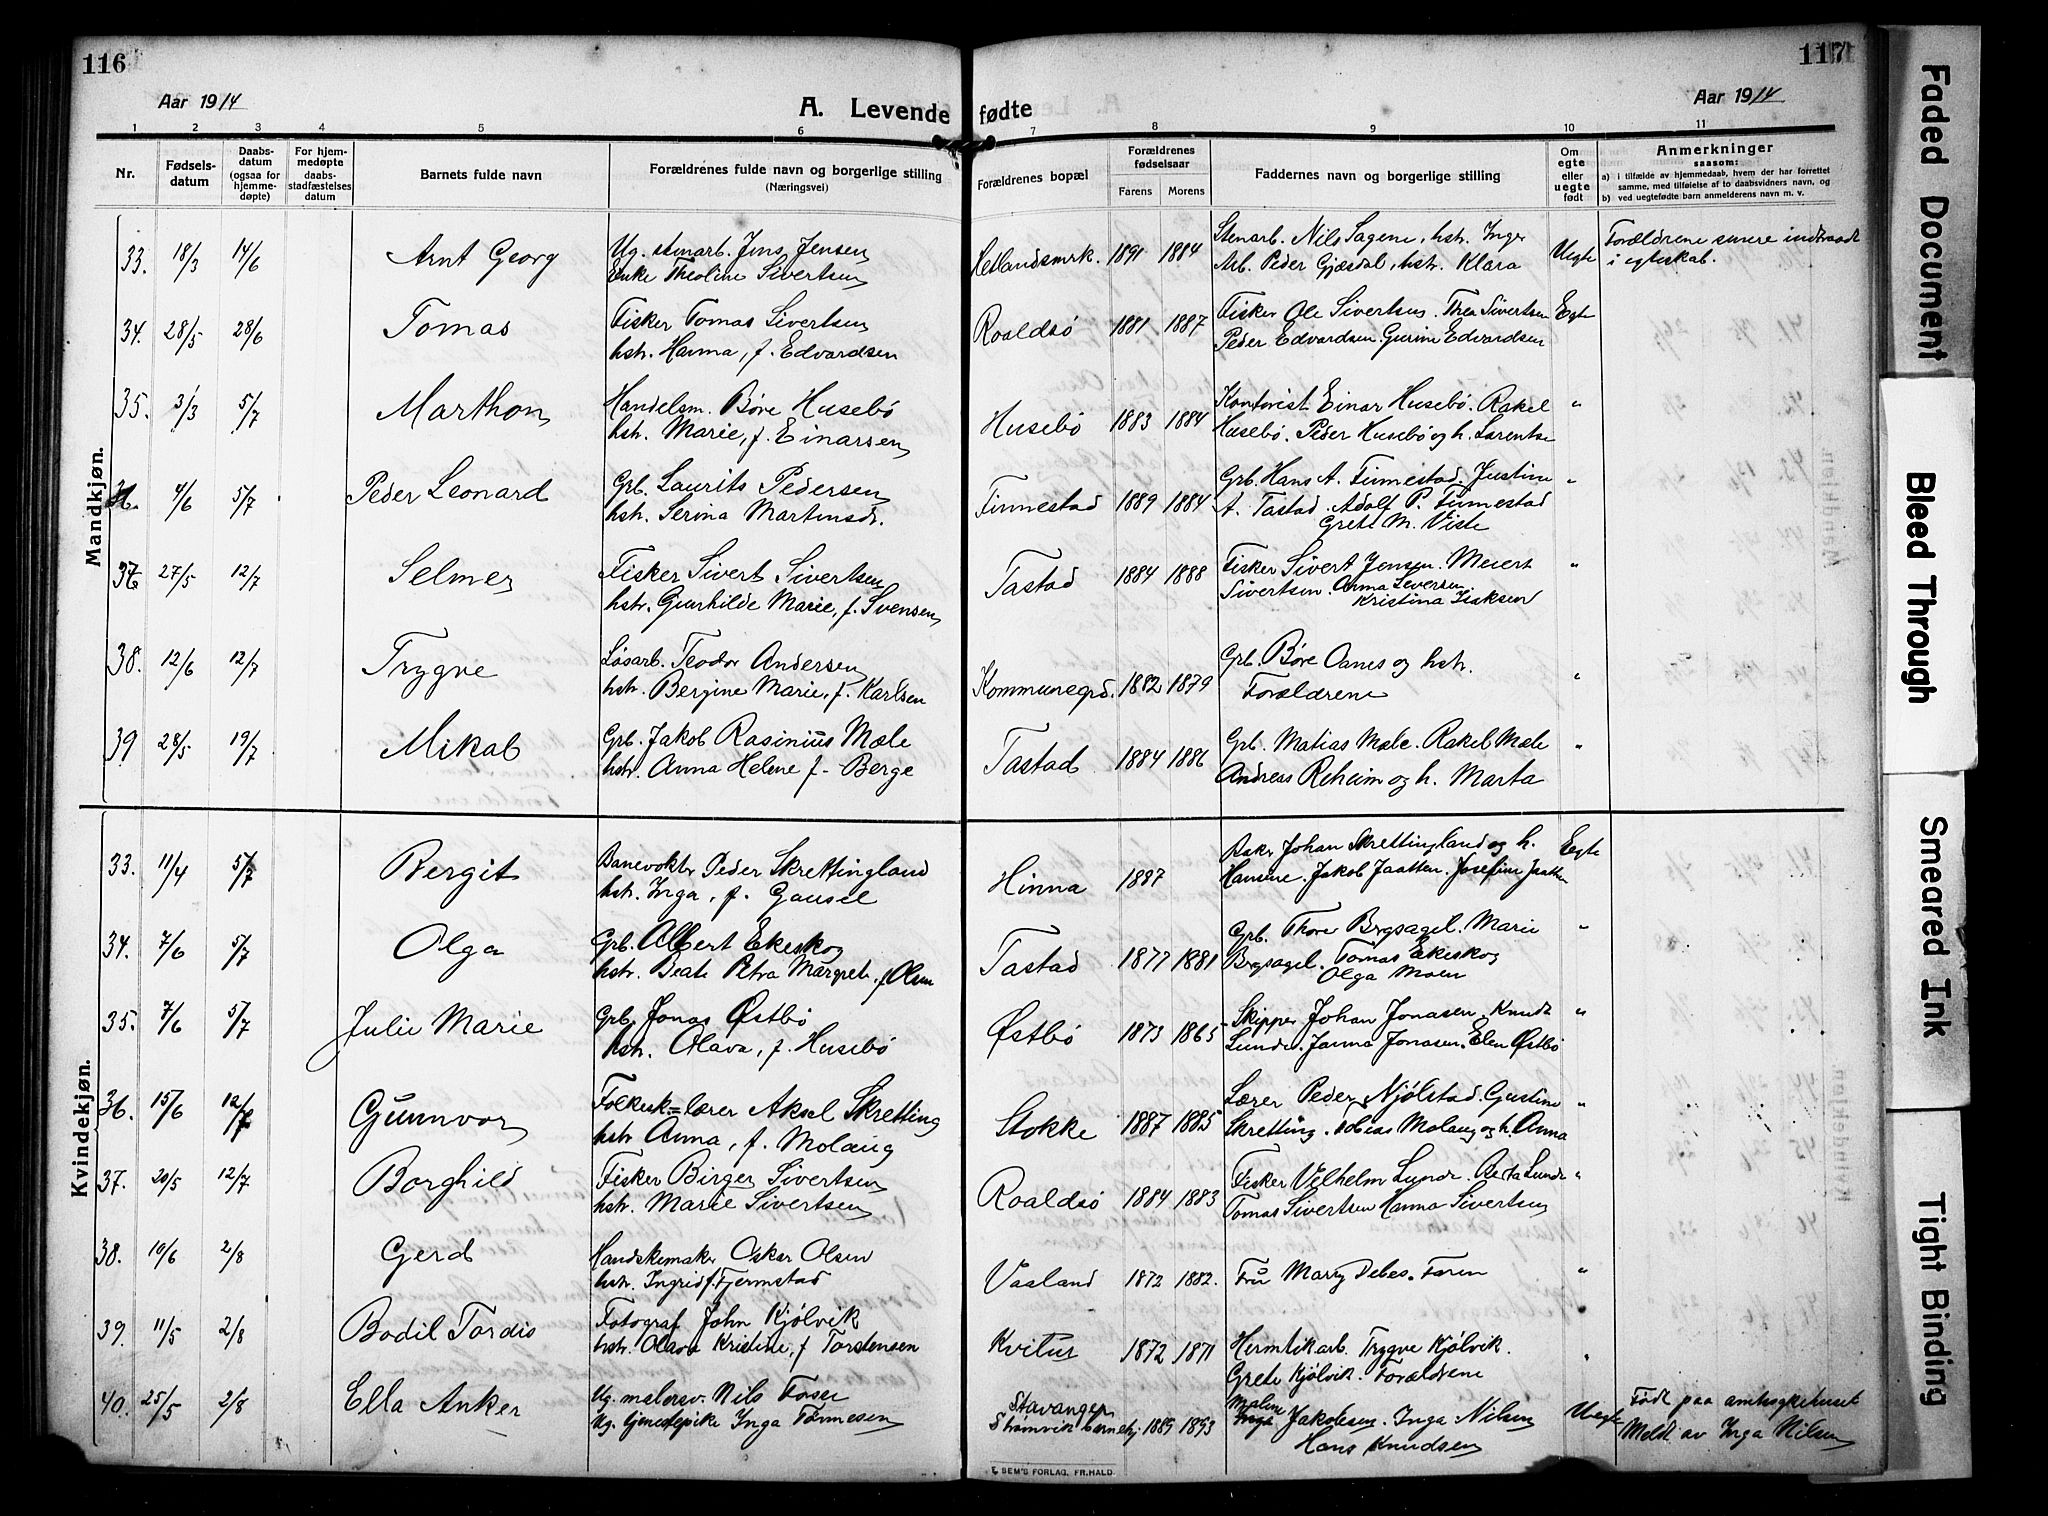 116
117
Aar 1914
A. Levende fødte
Aar 1914
1 2 3 4 5 6 7 8 9 10 11
Nr.
Fødsels-
datum
Daabs-
datum
(ogsaa for
hjemme-
døpte)
For hjem-
medøpte
daabs-
stadfæstelses
datum
Barnets fulde navn
Forældrenes fulde navn og borgerlige stilling
(Næringsvei)
Forældrenes bopæl
Forældrenes
fødselsaar
Farens Morens
Faddernes navn og borgerlige stilling
Om
egte
eller
uegte
født
Anmerkninger
saasom:
a) i tilfælde av hjemmedaab, hvem der har forrettet
samme, med tilføielse af to daabsvidners navn, og
b) ved uegtefødte barn anmelderens navn m. v.
Mandkjøn.
33. 18/3 14/6 Arnt Georg
Ug. stenarb. Jens Jensen
Enke Theoline Sivertsen
Hetlandsmrk. 1891 1884
Stenarb. Nils Sagene, hstr. Inger
Arb. Peder Gjæsdal, hstr. Klara
Uegte
Forældrene senere indtraadt
i egteskab.
34. 28/5 28/6 Tomas
Fisker Tomas Sivertsen
hstr. Hanna, f. Edvardsen
Roaldsø 1881 1887
Fisker Ole Sivertsen. Thea Sivertsen
Peder Edvardsen. Gurine Edvardsen
Egte
35. 3/3 5/7 Marthon
Handelsm. Børe Husebø
hstr. Marie, f. Einarsen
Husebø 1883 1884
Kontorist Einar Husebø. Rakel
Husebø. Peder Husebø og h. Lorentse
"
36. 4/6 5/7 Peder Leonard
Grb. Laurits Pedersen
hstr. Serina Martinsdr.
Finnestad 1889 1884
Grb. Hans A. Finnestad. Justine
A. Tastad. Adolf P. Finnestad
Grete M. Viste
"
37. 27/5 12/7 Selmer
Fisker Sivert Sivertsen
hstr. Gunhilde Marie, f. Svensen
Tastad 1884 1888
Fisker Sivert Jensen. Meiert
Sivertsen. Anna Seversen
Kristina Isaksen
"
38. 12/6 12/7 Trygve
Løsarb. Teodor Andersen
hstr. Bergine Marie, f. Karlsen
Kommunegrd. 1882 1879
Grb. Børe Oanes og hstr.
Forældrene
"
39 28/5 19/7 Mikal
Grb. Jakob Rasinius Mæle
hstr. Anna Helene f. Berge
Tastad 1884 1886
Grb. Matias Mæle. Rakel Mæle
Andreas Reheim og h. Marta
"
Kvindekjøn.
33. 11/4 5/7 Bergit
Banevokter Peder Skrettingland
hstr. Inga, f. Gausel
Hinna 1887
Baker Johan Skrettingland og h.
Hansine. Jakob Jaatten. Josefine Jaatten
Egte
34. 7/6 5/7 Olga
Grb. Albert Ekeskog
hstr. Beate Petra Margrete, f. Olsen
Tastad 1877 1881
Grb. Thore Bergsagel. Marie
Bergsagel. Tomas Ekeskog
Olga Moen
"
35. 7/6 5/7 Julie Marie
Grb. Jonas Østbø
hstr. Olava, f. Husebø
Østbø 1873 1865
Skipper Johan Jonasen. Knut
Lunde. Janna Jonasen. Elen Østbø
"
36. 15/6 12/7 Gunnvor
Folkesk=lærer Aksel Skretting
hstr. Anna, f. Molaug
Stokke 1887 1885
Lærer Peder Njølstad. Gustine
Skretting. Tobias Molaug og h. Anna
"
37. 20/5 12/7 Borghild
Fisker Birger Sivertsen
hstr. Marie Sivertsen
Roaldsø 1884 1883
Fisker Vilhelm Lunde. Berta Lunde
Tomas Sivertsen Hanna Sivertsen
"
38. 10/6 2/8 Gerd
Handskemaker Oskar Olsen
hstr. Ingrid f. Fjermstad
Vaaland 1872 1882.
Fru Marry Debes. Faren
"
39. 11/5 2/8 Bodil Tordis
Fotograf John Kjølvik
hstr. Olava Kristine, f. Torstensen
Kvitur 1872 1871
Hermtikarb. Trygve Kjølvik.
Grete Kjølvik. Forældrene
"
40. 25/5 2/8 Ella Anker
Ug. malersv. Nils Fosse
Ug. tjenestepike Inga Tønnesen
Stavanger
Strømvik barnehj. 1889 1893
Malene
Jakobsen. Inga Nilsen
Hans Knudsen
Uegte
Født paa amtssykehuset
Meldt av Inga Nilsen
E. SEM'S FORLAG, FR.HALD.
Faded Document
Bleed Through
Smeared Ink
Tight Binding